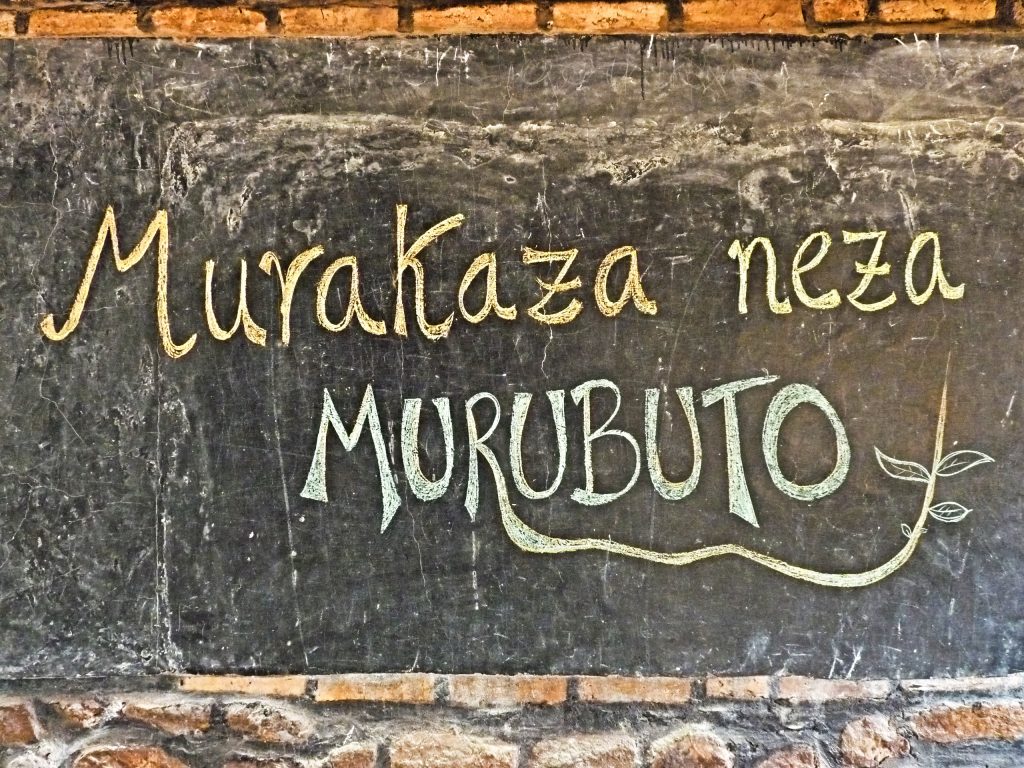 Murakaza neza
MURUBUTO